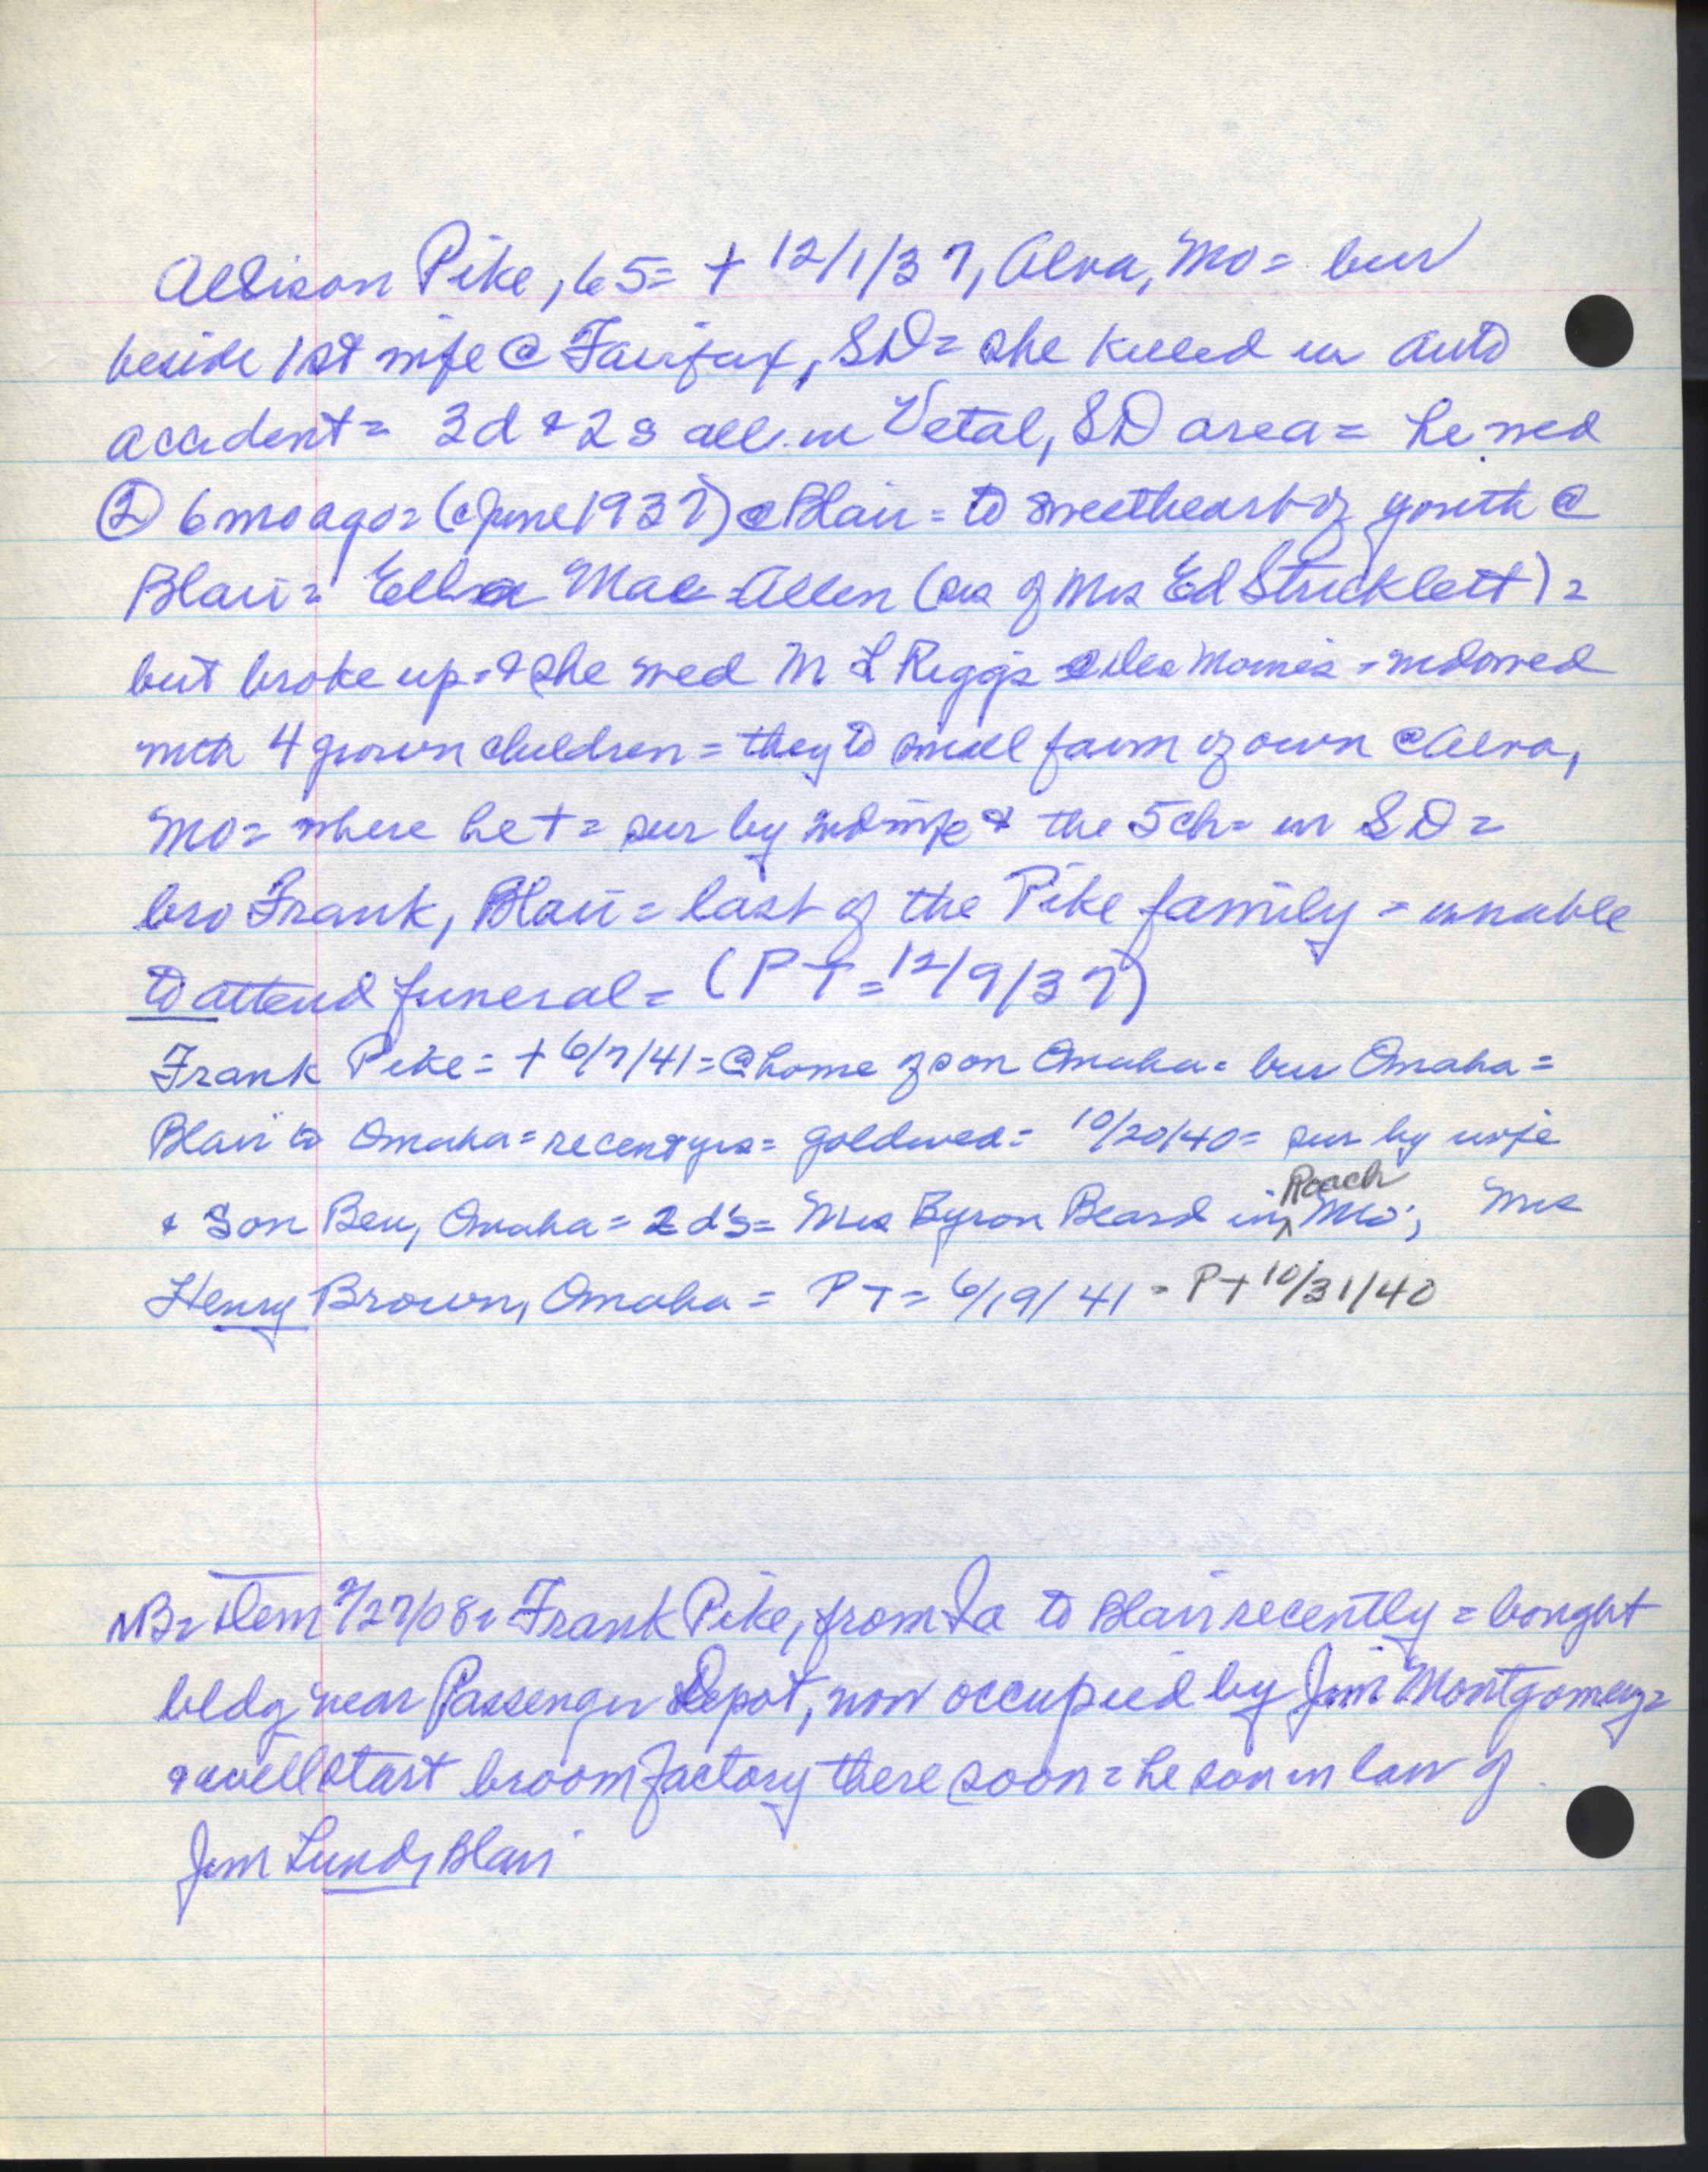 Allison Pike, 65= + 12/1/37, Alva, Mo= bur
beside 1st wife @ Fairfax, SD= she killed in auto
accident= 3d & 2s all in Vetal, SD area= he wed
② 6 mo ago= (c June 1937) @ Blair= to sweetheart of youth @
Blair= Ella Mae Allen (sis of Mrs Ed Stricklett)=
but broke up= & she wed M L Riggs @ Des Moines = widowed
with 4 grown children= they to small farm of own @ Alva,
Mo= where he += sur by 2nd wife & the 5 ch= in SD=
bro Frank, Blair= last of the Pike family = unable
to attend funeral= (PT=12/9/37)
Frank Pike= + 6/7/41=@ home of son Omaha= bur Omaha=
Blair to Omaha= recent yrs= goldwed= 10/20/40= sur by wife
& son Ben, Omaha= 2 d's= Mrs Byron Beard in Roach Mo; Mrs
Henry Brown, Omaha= PT= 6/19/41 = PT 10/31/40
NB= Dem /27/08= Frank Pike, from Ia to Blair recently = bought
bldg near Passenger Depot, now occupied by Jim Montgomery=
& will start broom factory there soon= he son in law of
Jim Lundy Blair